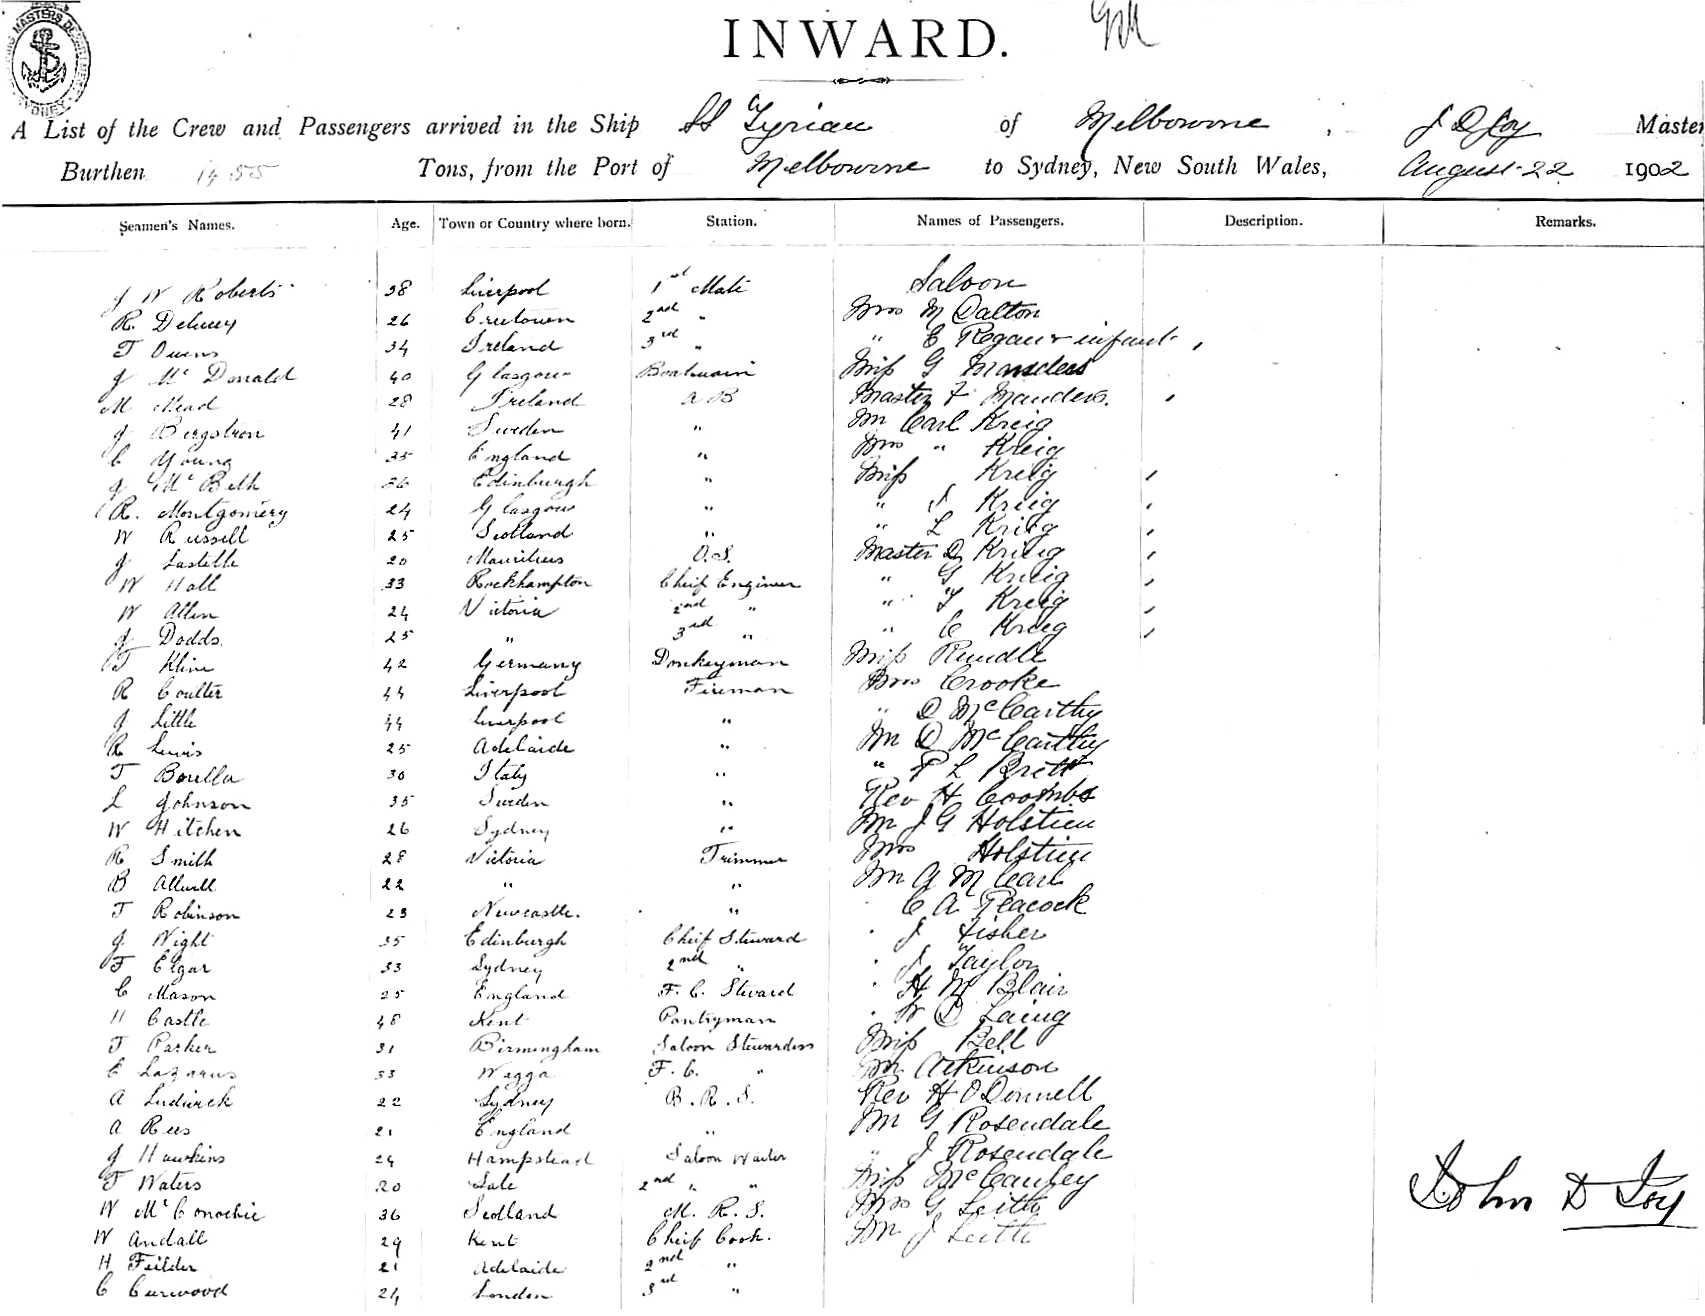 INWARD.
A List of the Crew and Passengers arrived in the Ship SS Tyrian of Melbourne, J D Joy Master
Burthen 1455 Tons, from the Port of Melbourne to Sydney, New South Wales, August 22 1902
Seamen's Names. Age. Town or Country where born. Station. Names of Passengers. Description. Remarks.
Saloon
J W Roberts 38 Liverpool 1st Mate
R. Delucey 26 2nd " Mrs M Dalton
T Owens 34 Ireland 3rd " " E Regan & infant
J Mc Donald 40 Glasgow Boatswain Miss G Manders
M Mead 28 Ireland A B Master F Manders.
J Bergstron 41 Sweden " Mr Carl Kreig
C Young 35 England " Mrs " Kreig
J Mc Beth 36 Edinburgh " Miss Kreig
R. Montgomery 24 Glasgow " " S Kreig
W Russell 25 Scotland " " L Kreig
J Lastelle 20 Mauritius O.S. Master D Kreig
W Hall 33 Rockhampton Cheif Engineer " G Kreig
W Allen 24 Victoria 2nd " " T Kreig
J Dodds 25 " 3rd " " C Kreig
T Kline 42 Germany Donkeyman Miss Rundle
R Coulter 44 Liverpool Fireman Mrs Crooke
J Little 44 Liverpool " " D McCarthy
R Lewis 25 Adelaide " Mr D McCarthy
T Borella 30 Italy " " P L Brett
L Johnson 35 Sweden " Rev H Coombs
W Hitchen 26 Sydney " Mr J G Holstien
R Smith 28 Victoria Trimmer Mrs Holstien
B Allwell 22 " " Mr A M Carl
T Robinson 23 Newcastle. " C A Peacock
J Wight 35 Edinburgh Cheif Steward J Fisher
F Elgar 33 Sydney 2nd " J Taylor
C Mason 25 England F. C. Steward H M Blair
H Castle 48 Kent Pantryman W D Laing
F Parker 31 Birmingham Saloon Stewardess Miss Bell
E Lazarus 33 Wagga F. C. " Mr Atkinson
A Ludwick 22 Sydney B. R. S. Rev H O'Donnell
A Rees 21 England " Mr G Rosendale
J Hawkins 24 Hampstead Saloon Waiter " J Rosendale
F Waters 20 Sale 2nd " " Miss McCauley
W McConochie 36 Scotland M. R. S. Mrs G Leith
W Andall 29 Kent Cheif Cook. Mr J Leith
H Feilder 21 Adelaide 2nd "
C Curwood 24 London 3rd "
John D Joy